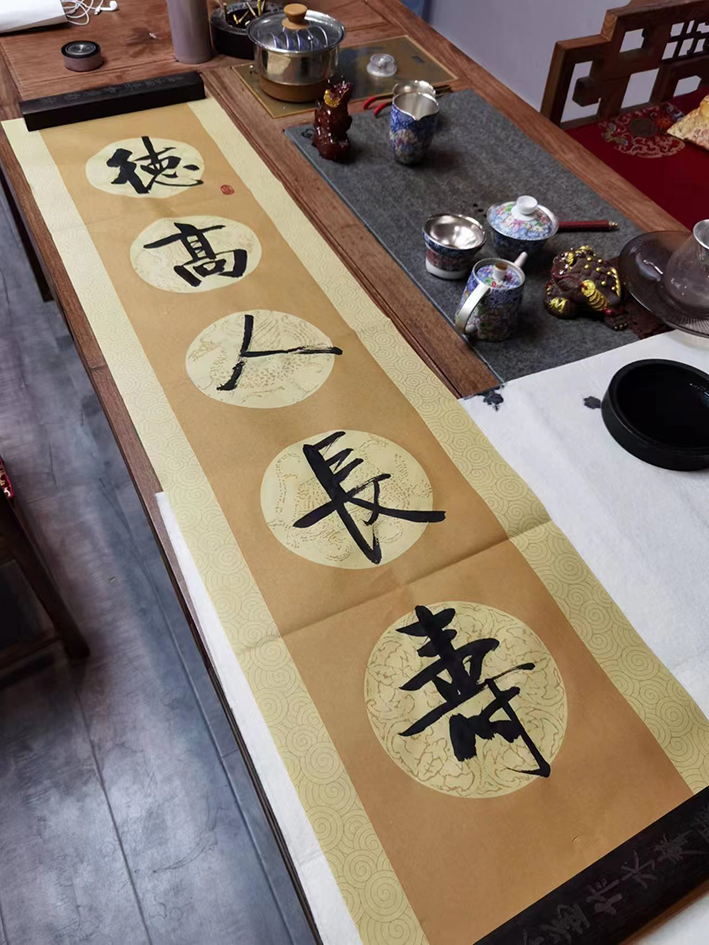 德高人長壽